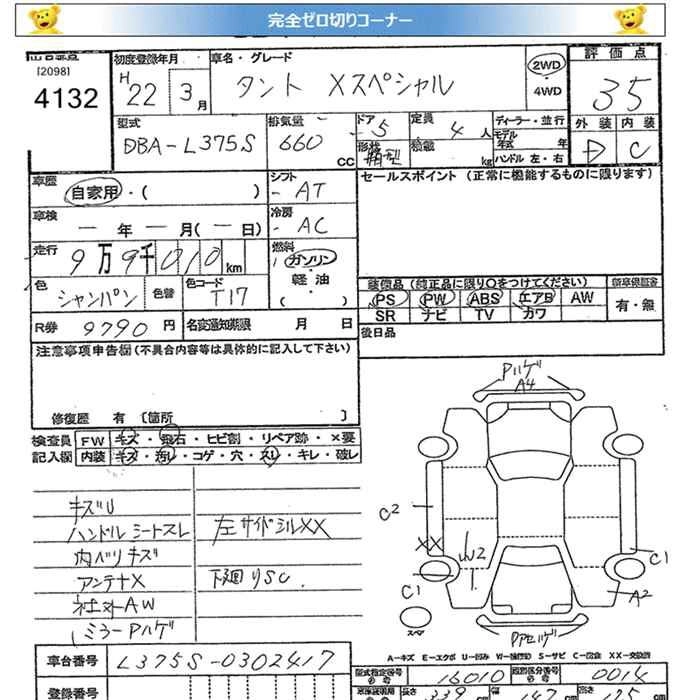 完全ゼロ切りコーナー
[2098]
4132
初度登録年月 H 22 3月
車名・グレード タント Xスペシャル
2WD・4WD
評価点 35
外装 内装 D C
型式 DBA-L375S
排気量 660 CC
ドア 5
形状 箱型
定員 4人
積載 kg
ディーラー・並行
モデル年式 年
ハンドル 左・右
車歴 自家用・( )
シフト - AT
セールスポイント (正常に機能するものに限ります)
車検 ー 年 ー 月(ー日)
冷房 - AC
走行 9万9千010km
燃料 ガソリン・軽油・( )
色 シャンパン 色替 色コード T17
装備品 (純正品に限り○をつけてください)
PS PW ABS エアB AW
SR ナビ TV カワ
新車保証書 有・無
R券 9790円
名変通知期限 月 日
後日品
注意事項申告欄(不具合内容等は具体的に記入して下さい)
修復歴 有 〔箇所 〕
検査員記入欄
FW キズ・飛石・ヒビ割・リペア跡・×要
内装 キズ・汚レ・コゲ・穴・スリ・キレ・破レ
キズU
ハンドル シートスレ 左サイドシルXX
内ベリキズ
アンテナX 下廻りSC.
社外AW
ミラーPハゲ
Pハゲ
A4
C2
XX
W2
C1
C1
A2
スペア
Pハゲ
A-キズ E-エクボ U-凹み W-補修跡 S-サビ C-腐食 XX-交換済
車台番号 L375S-0302417
型式指定番号 16010 類別区分番号 0014
登録番号
長さ 339 cm 幅 147 cm 高さ